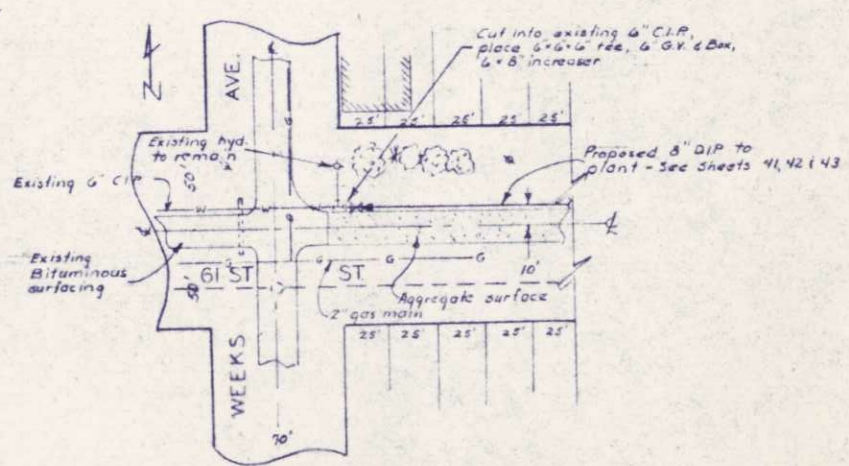 Cut into existing 6" C.I.P.,
place 6"x6"x6" tee, 6" G.V. & Box,
6"x8" increaser
N
AVE.
25' 25' 25' 25' 25'
Existing hyd.
to remain
Proposed 8" DIP to
plant - See Sheets 41, 42 & 43
Existing 6" C.I.P.
50'
W W
G
Existing
Bituminous
surfacing
G G G G
61 ST ST
10'
50'
Aggregate surface
2" gas main
25' 25' 25' 25' 25'
WEEKS
70'